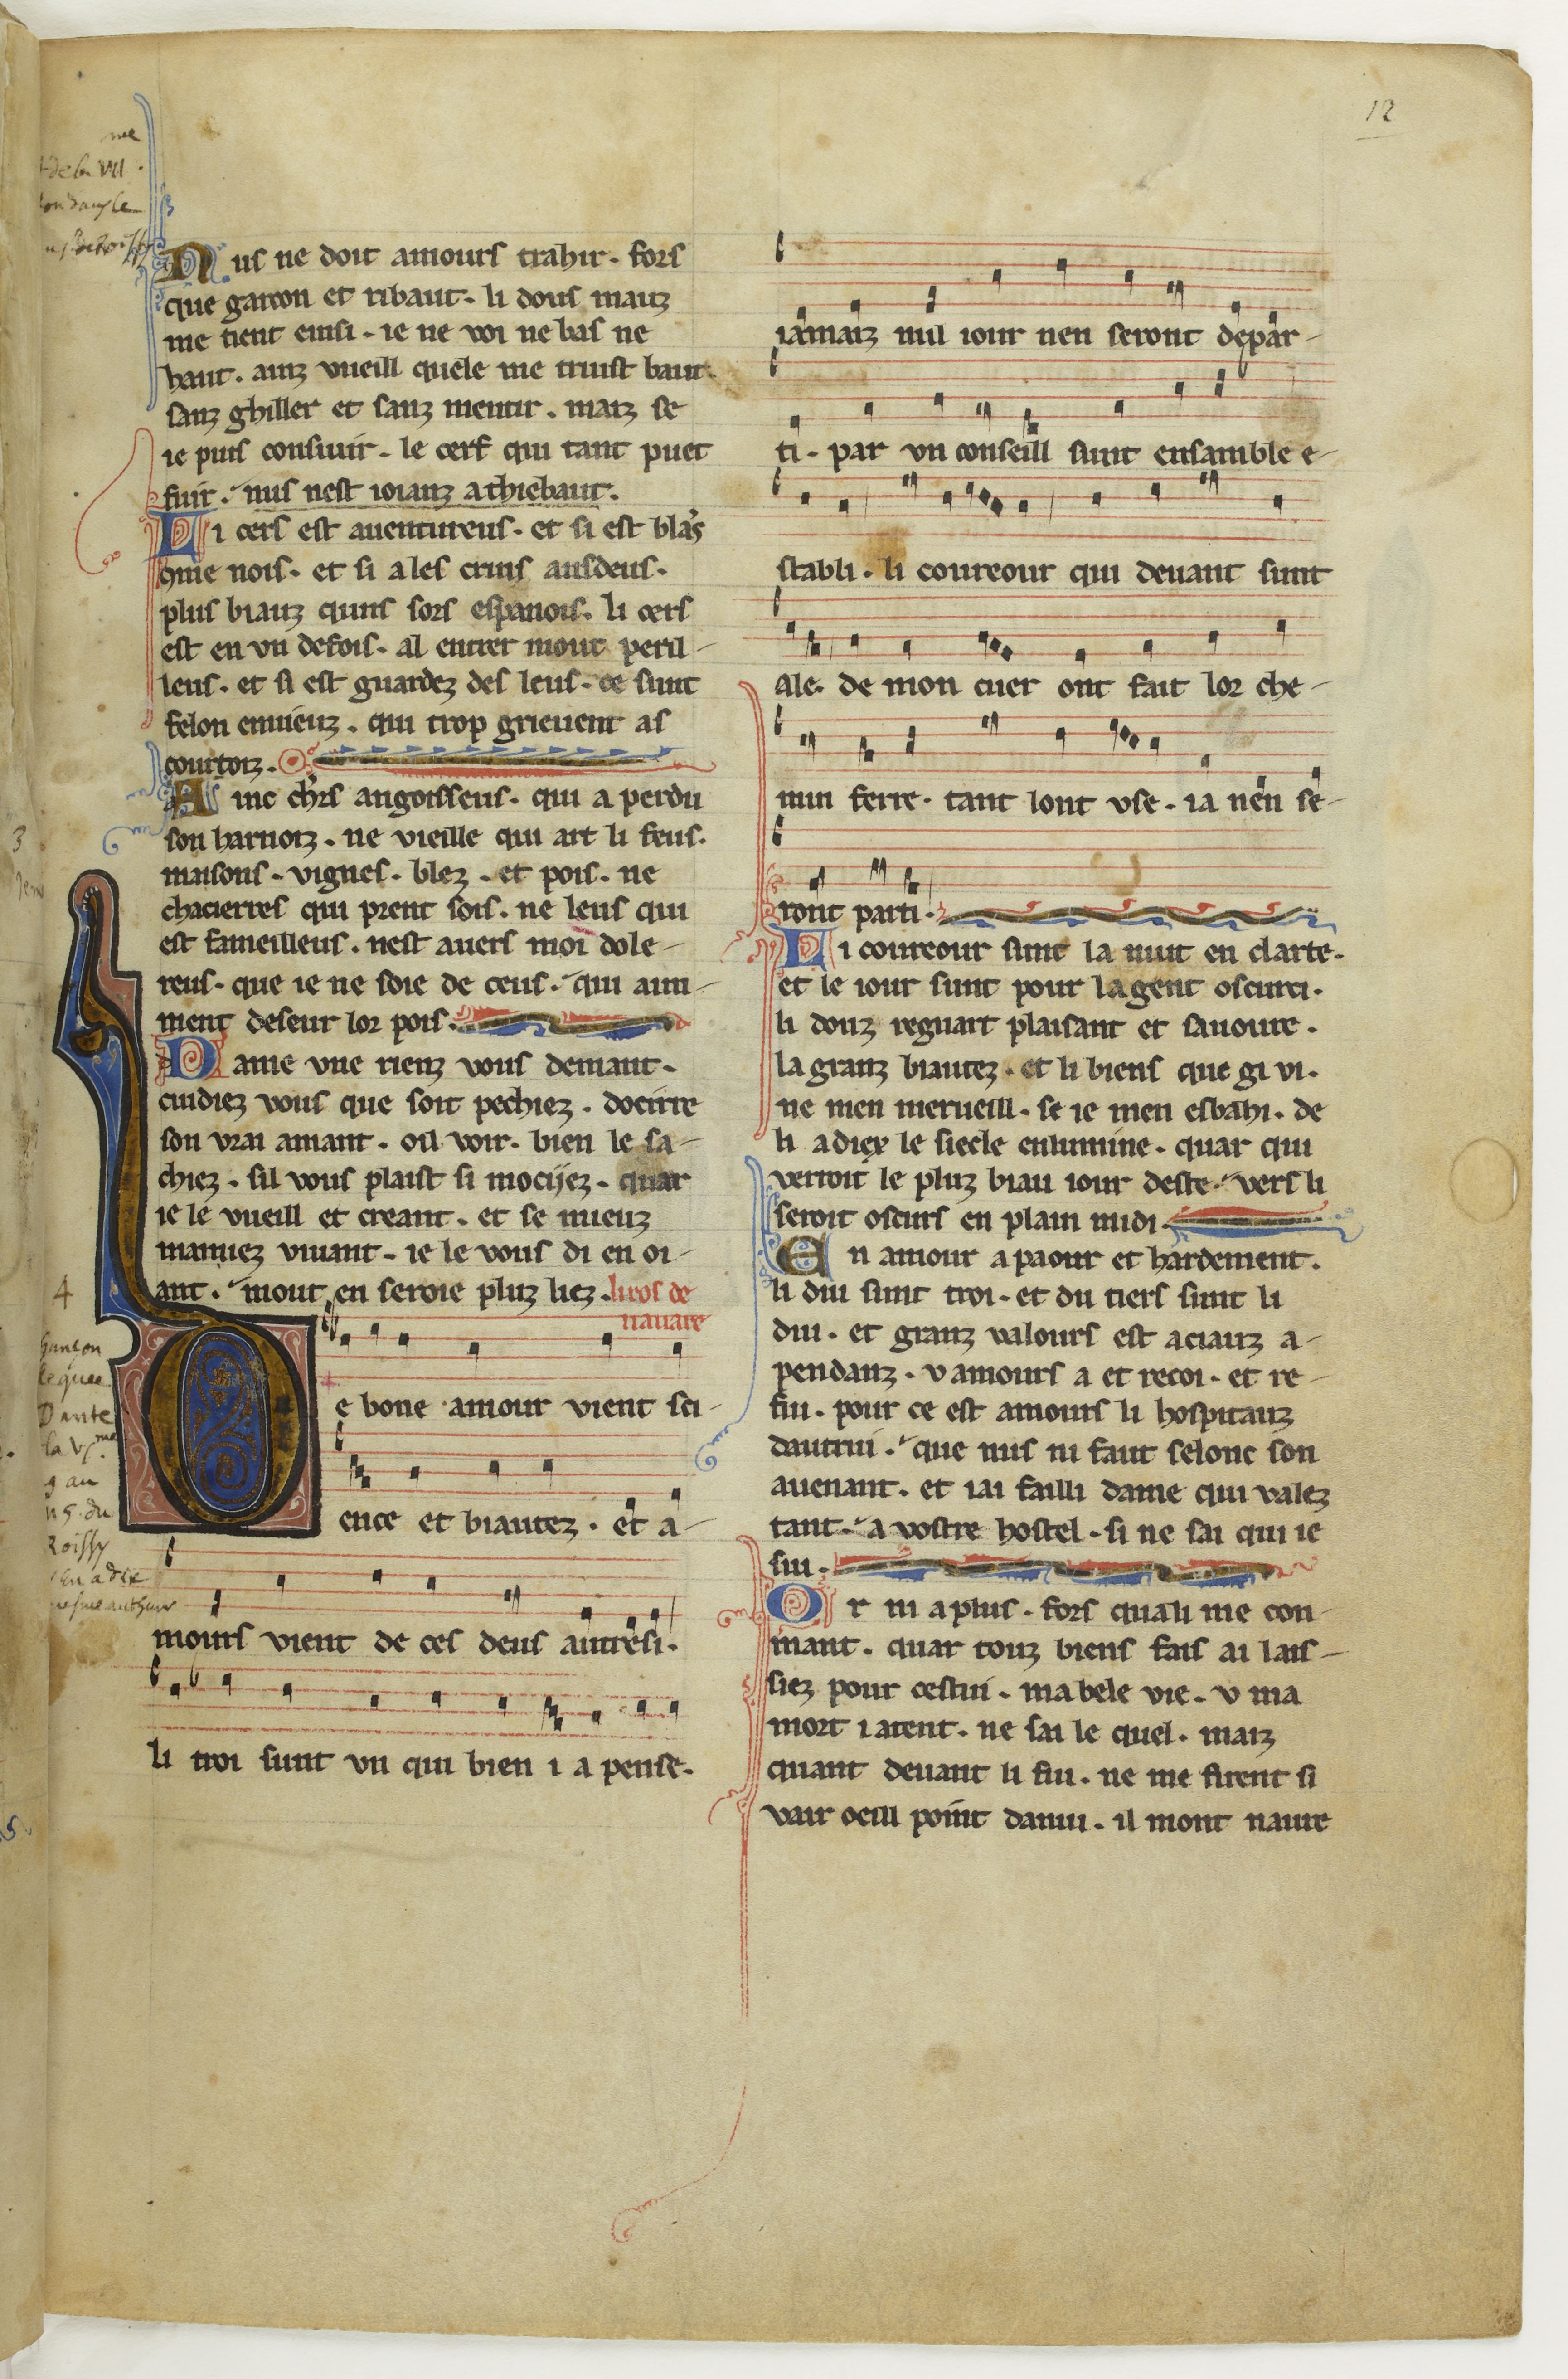 12
Nus ne doit amours trahir. fors
que garcon et ribaut. li dous mauz
me tient einsi. ie ne voi ne bas ne
haut. ainz vueill quele me truist baut.
sanz ghiller et sanz mentir. maiz se
ie puis consiuir. le cerf qui tant puet
fuir. nus nest ioianz a thiebaut.
Li cers est auentureus. et si est blãs
9me nois. et si a les crins ansdeus.
plus biauz quns sors espanois. li cers
est en vn defois. al entrer mout peril-
leus. et si est guardez des leus. ce sunt
felon enuieuz. qui trop grieuent as
courtoiz.
Ainc chrs angoisseus. qui a perdu
son harnoiz. ne vieille qui art li feus.
maisons. vignes. blez. et pois. ne
chacierres qui prent sois. ne leus qui
est fameilleus. nest auers moi dole-
reus. que ie ne soie de ceus. qui aim-
ment deseur lor pois.
Dame vne rienz vous demant.
cuidiez vous que soit pechiez. docirre
son vrai amant. oil voir. bien le sa-
chiez. sil vous plaist si mociez. quar
ie le vueill et creant. et se mieuz
mamiez viuant. ie le vous di en oi-
ant. mout en seroie pluz liez. li rois de
nauare
4
De bone amour vient sci-
ence et biautez. et a-
mours vient de ces deus autresi.
li troi sunt vn qui bien i a pense.
iamaiz nul iour nen seront depar-
ti. par vn conseill sunt ensamble e-
stabli. li coureour qui deuant sunt
ale. de mon cuer ont fait lor che-
min ferre. tant lont vse. ia nen se-
ront parti.
Li coureour sunt la nuit en clarte.
et le iour sunt pour la gent oscurci.
li douz reguart plaisant et sauoure.
la granz biautez. et li biens que gi vi.
ne men merueill. se ie men esbahi. de
li a diex le siecle enlumine. quar qui
verroit le pluz biau iour deste. vers li
seroit oscurs en plain midi.
En amour a paour et hardement.
li dui sunt troi. et du tiers sunt li
dui. et granz valours est a ciauz a-
pendanz. v amours a et recoi. et re-
fui. pour ce est amours li hospitauz
dautrui. que nus ni faut selonc son
auenant. et iai failli dame qui valez
tant. a vostre hostel. si ne sai qui ie
sui.
Or ni a plus. fors qua li me con-
mant. quar touz biens fais ai lais-
siez pour cestui. ma bele vie. v ma
mort i atent. ne sai le quel. maiz
quant deuant li fui. ne me firent si
vair oeill point danui. il mont naure